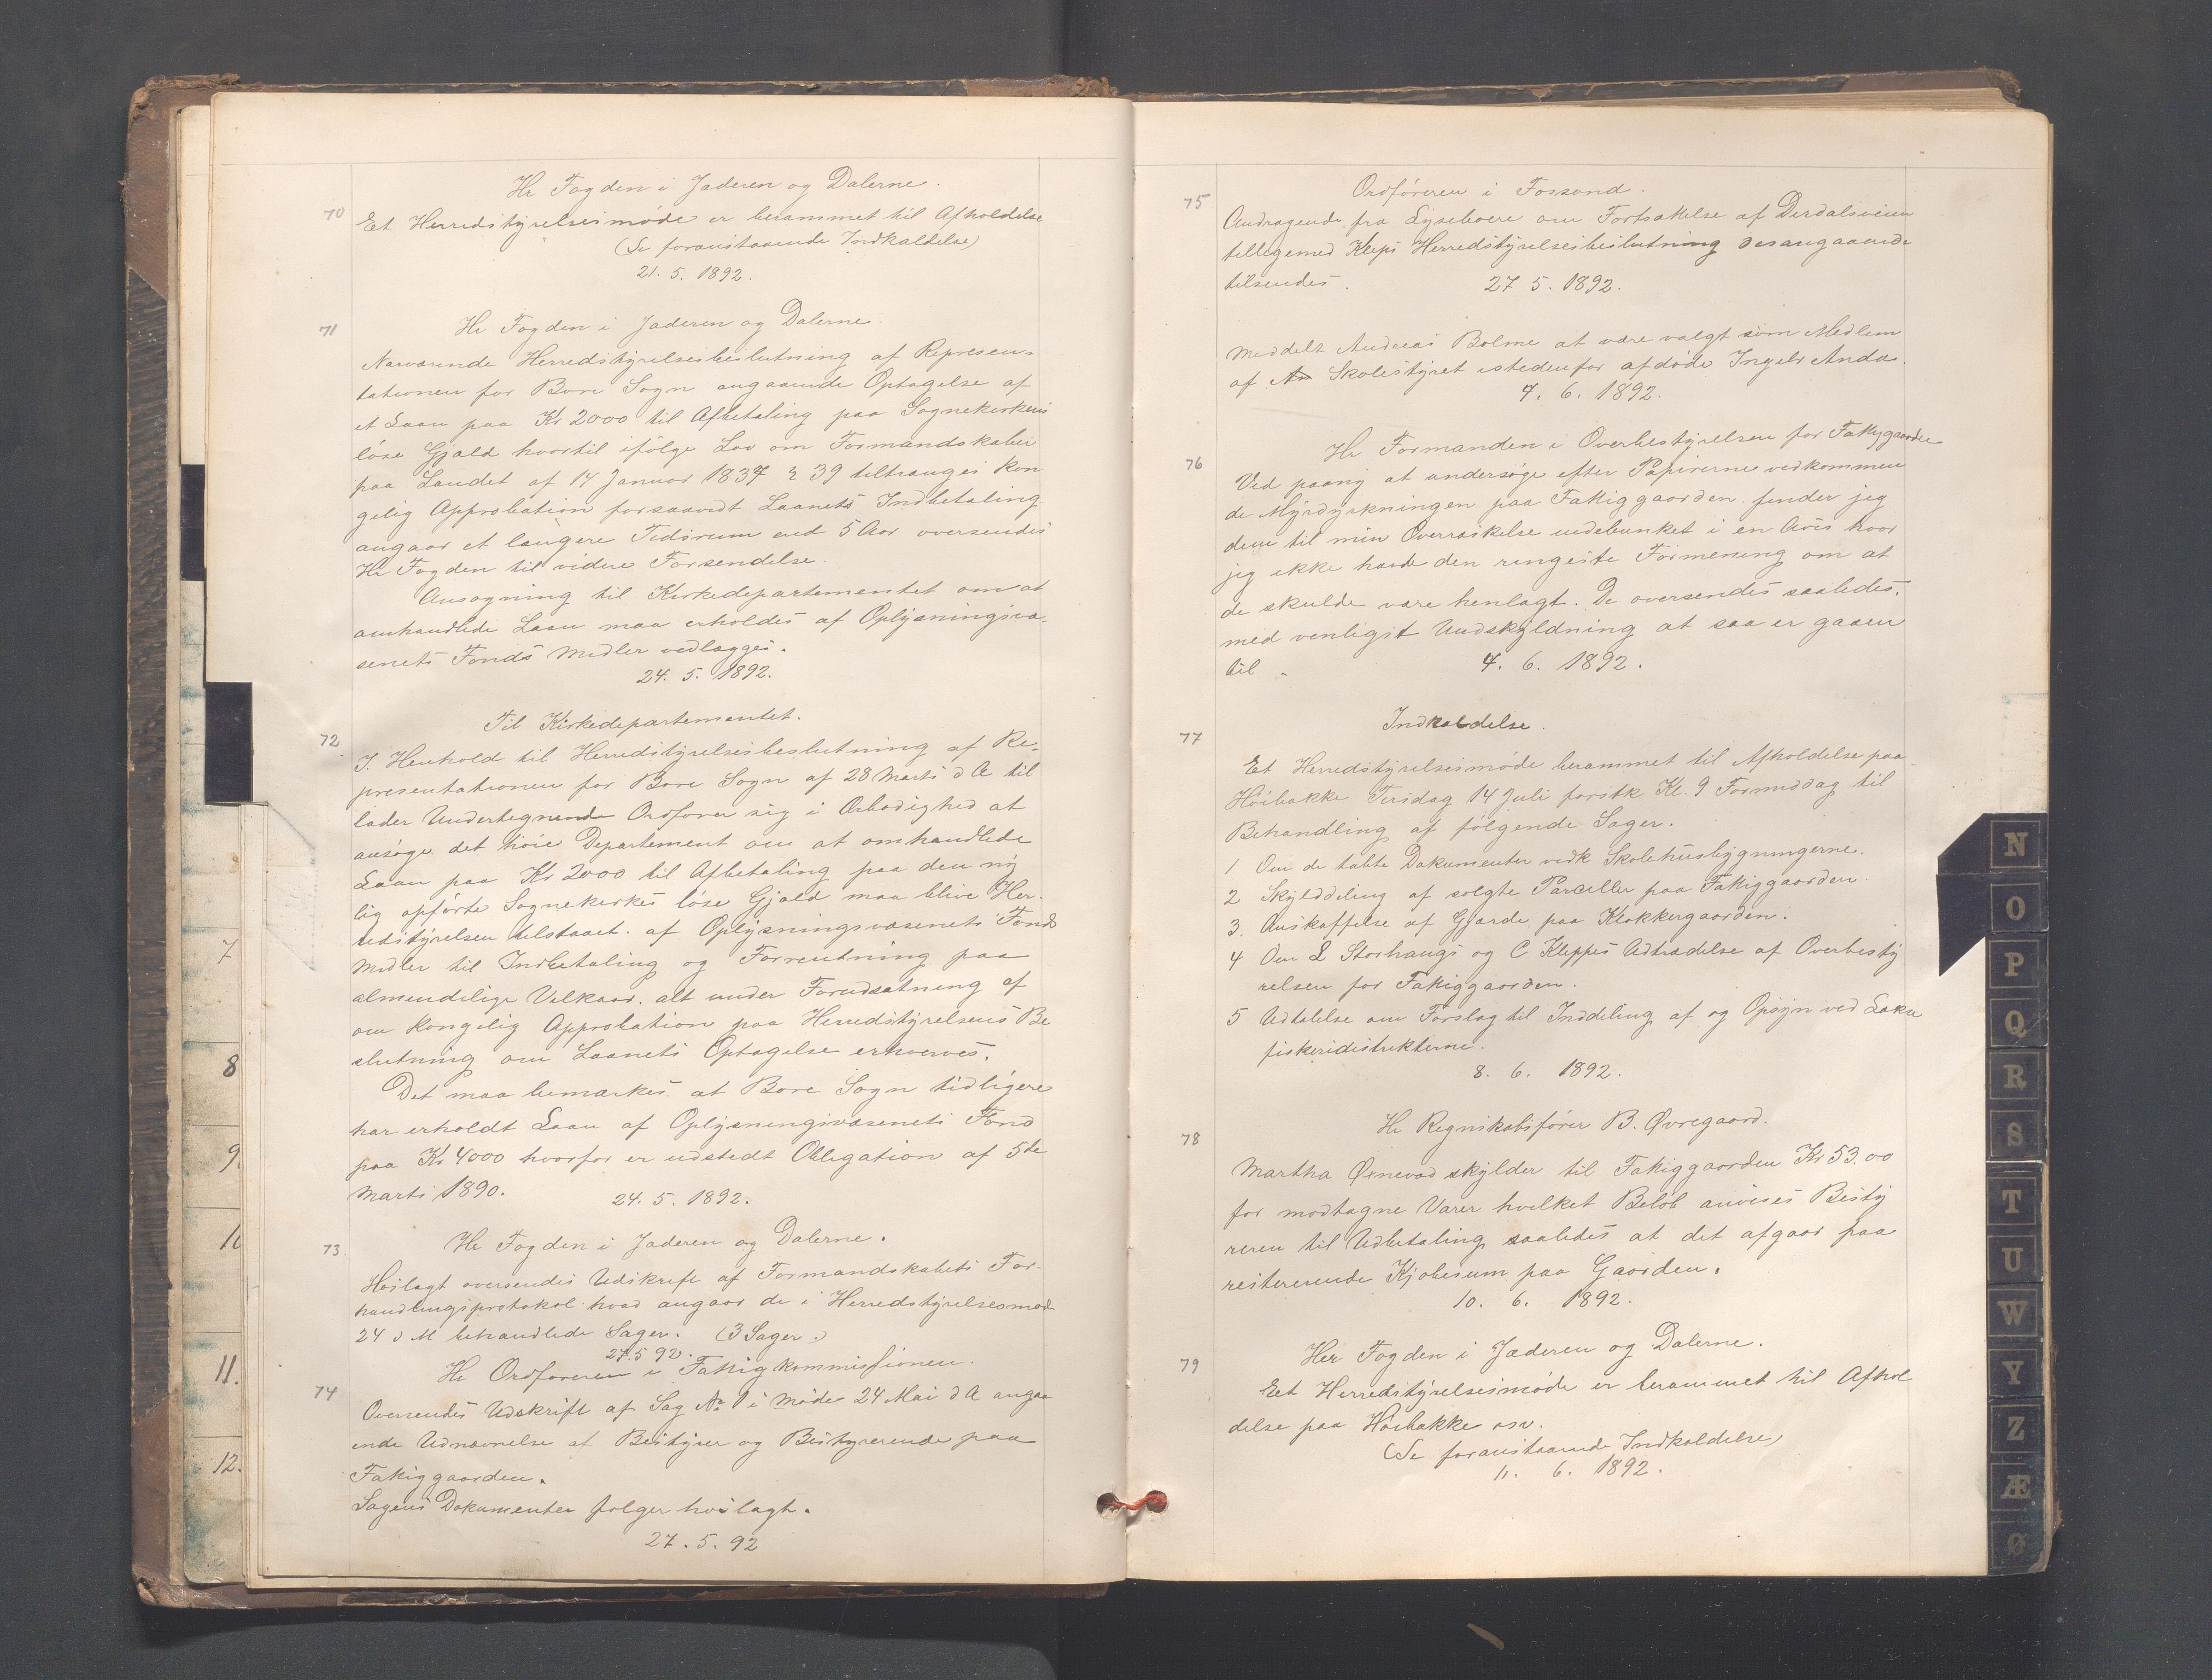 Hr Fogden i Jæderen og Dalerne.
70 Et Herredstyrelsesmøde er berammet til Afholdelse
(Se foranstaaende Indkaldelse)
21. 5. 1892.
71 Hr Fogden i Jæderen og Dalerne
Nærværende Herredstyrelsesbeslutning af Represen-
tationen for Bore Sogn angaaende Optagelse af
et Laan paa Kr 2000 til Afbetaling paa Sognekirkens
løse Gjæld hvortil ifølge Lov om Formandskaber
paa Landet af 14 Januar 1837 § 39 tiltrænges kon
gelig Approbation forsaavidt Laanets Indbetaling
angaar et længere Tidsrum end 5 Aar oversendes
Hr Fogden til videre Forsendelse.
Ansøgning til Kirkedepartementet om at
omhandlede Laan maa erholdes af Oplysningsvæ-
senets Fonds Midler vedlægges.
24. 5. 1892.
Til Kirkedepartementet.
72 I Henhold til Herredstyrelsesbeslutning af Re-
presentationen for Bore Sogn af 28 Marts d A til
lader Undertegnende Ordfører sig i Ærbødighed at
ansøge det høie Departement om at omhandlede
Laan paa Kr 2000 til Afbetaling paa den ny
lig opførte Sognekirkes løse Gjæld maa blive Her-
redstyrelsen tilstaaet. af Oplysningsvæsenets Fonds
Midler til Indbetaling og Forrentning paa
almendelige Vilkaar. alt under Forudsætning af
om kongelig Approbation paa Herredstyrelsens Be
slutning om Laanets Optagelse erhverves.
Det maa bemærkes at Bore Sogn tidligere
har erholdt Laan af Oplysningsvæsenets Fond
paa Kr 4000 hvorfor er udstedt Obligation af 5te
Marts 1890. 24. 5. 1892.
73 Hr Fogden i Jæderen og Dalerne.
Hoslagt oversendes Udskrift af Formandskabets For-
handlingsprotokol hvad angaar de i Herredstyrelsesmøde
24 d M behandlede Sager. (3 Sager.)
27.5 92.
Hr Ordføreren i Fattigkommissionen.
74 Oversendes Udskrift af Sag № 1 i Møde 24 Mai d A angaa
ende Udnævnelse af Bestyrer og Bestyrerende paa
Fattiggaarden.
Sagens Dokumenter følger hoslagt.
27. 5. 92
75 Ordføreren i Fossand.
Andragende fra Lyseboere om Fortsættelse af Dirdalsveien
tilligemed Kleps Herredstyrelsesbeslutning desangaaende
tilsendes. 27 5. 1892.
Meddelt Andreas Bolme at være valgt som Medlem
af Skolestyret istedenfor afdøde Ingebr Anda.
7. 6. 1892.
Hr Formanden i Overbestyrelsen for Fattiggaarden
76 Ved paany at undersøge efter Papirerne vedkommen
de Myrdyrkningen paa Fattiggaarden finder jeg
dem til min Overraskelse indebunket i en Avis hvor
jeg ikke havde den ringeste Formening om at
de skulde være henlagt. De oversendes saaledes.
med venligst Undskyldning at saa er gaaen
til. 7. 6. 1892.
Indkaldelse.
77 Et Herredstyrelsesmøde berammet til Afholdelse paa
Høibakke Tirsdag 14 Juli førstk Kl. 9 Formiddag til
Behandling af følgende Sager.
1 Om de tabte Dokumenter vedk Skolehusbygningerne.
2 Skylddeling af solgte Parceller paa Fattiggaarden.
3. Anskaffelse af Gjærde paa Klokkergaarden.
4 Om L Storhaugs og C Kleppes Udtrædelse af Overbesty
relsen for Fattiggaarden.
5 Udtalelse om Forslag til Inddeling af og Opsyn ved Lakse
fiskeridistrikterne.
8. 6. 1892.
Hr Regnskabsfører B. Øvregaard.
78 Martha Ørnevad skylder til Fattiggaarden Kr 53.00
for modtagne Varer hvilket Beløb anvises Besty
reren til Udbetaling saaledes at det afgaar paa
resterende Kjøbesum paa Gaarden.
10. 6. 1892.
79 Her Fogden i Jæderen og Dalerne.
Eet Herredstyrelsesmøde er berammet til Afhol
delse paa Høibakke osv.
(Se foranstaaende Indkaldelse)
11. 6. 1892.
7
8
9.
10
11.
12.
N
O
P
Q
R
S
T
U
W
Y
Z
Æ
Ø